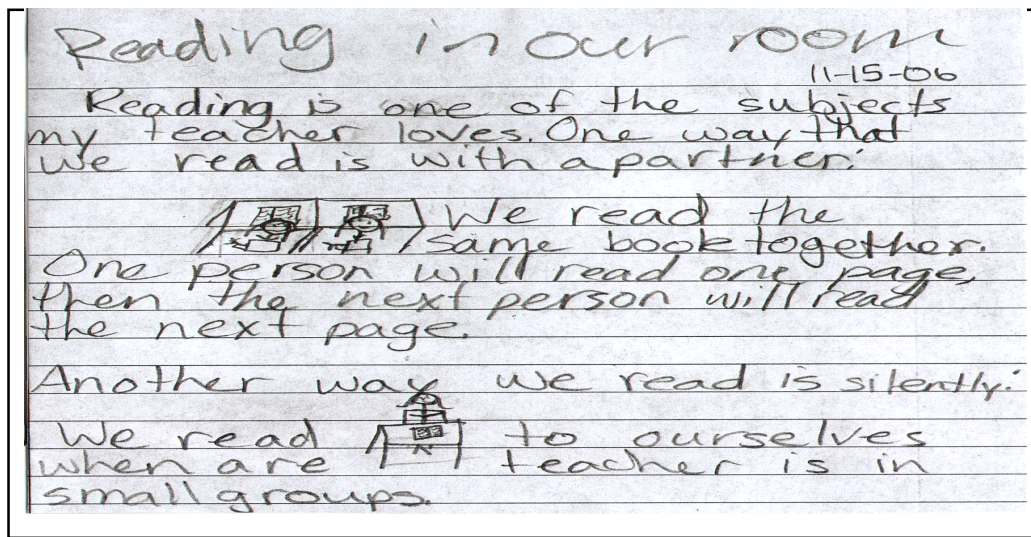 Reading in our room
11-15-06
Reading is one of the subjects
my teacher loves. One way that
we read is with a partner:
We read the
same book together.
One person will read one page,
then the next person will read
the next page.
Another way we read is silently:
We read to ourselves
when are teacher is in
small groups.